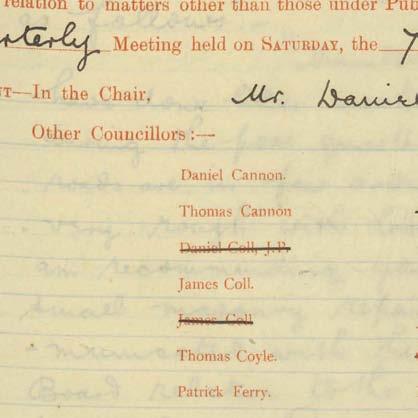 relation to matters other than those under Pub
rterly Meeting held on SATURDAY, the 7
NT—In the Chair, Mr. Daniel
Other Councillors:—
Daniel Cannon.
Thomas Cannon
Daniel Coll, J.P.
James Coll.
James Coll
Thomas Coyle.
Patrick Ferry.